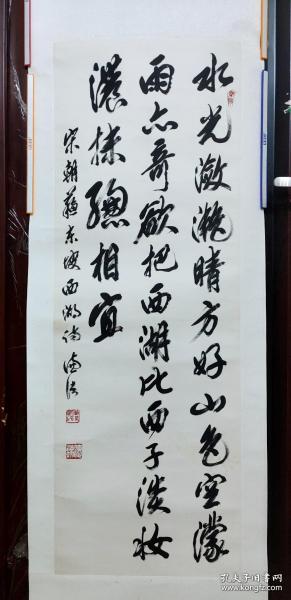 水光潋滟晴方好山色空濛
雨亦奇欲把西湖比西子淡妆
浓抹总相宜
宋朝苏东坡西湖诗
孔夫子旧书网